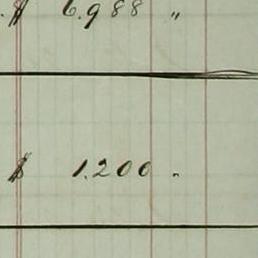 $ 6.988 "
$ 1.200 "